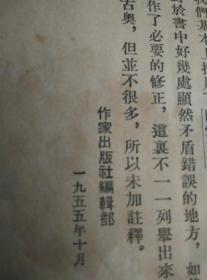 我們基本上
於書中好幾處顯然矛盾錯誤的地方，如
作了必要的修正，這裏不一一列舉出來
古奧，但並不很多，所以未加註釋。
作家出版社編輯部
一九五五年十月